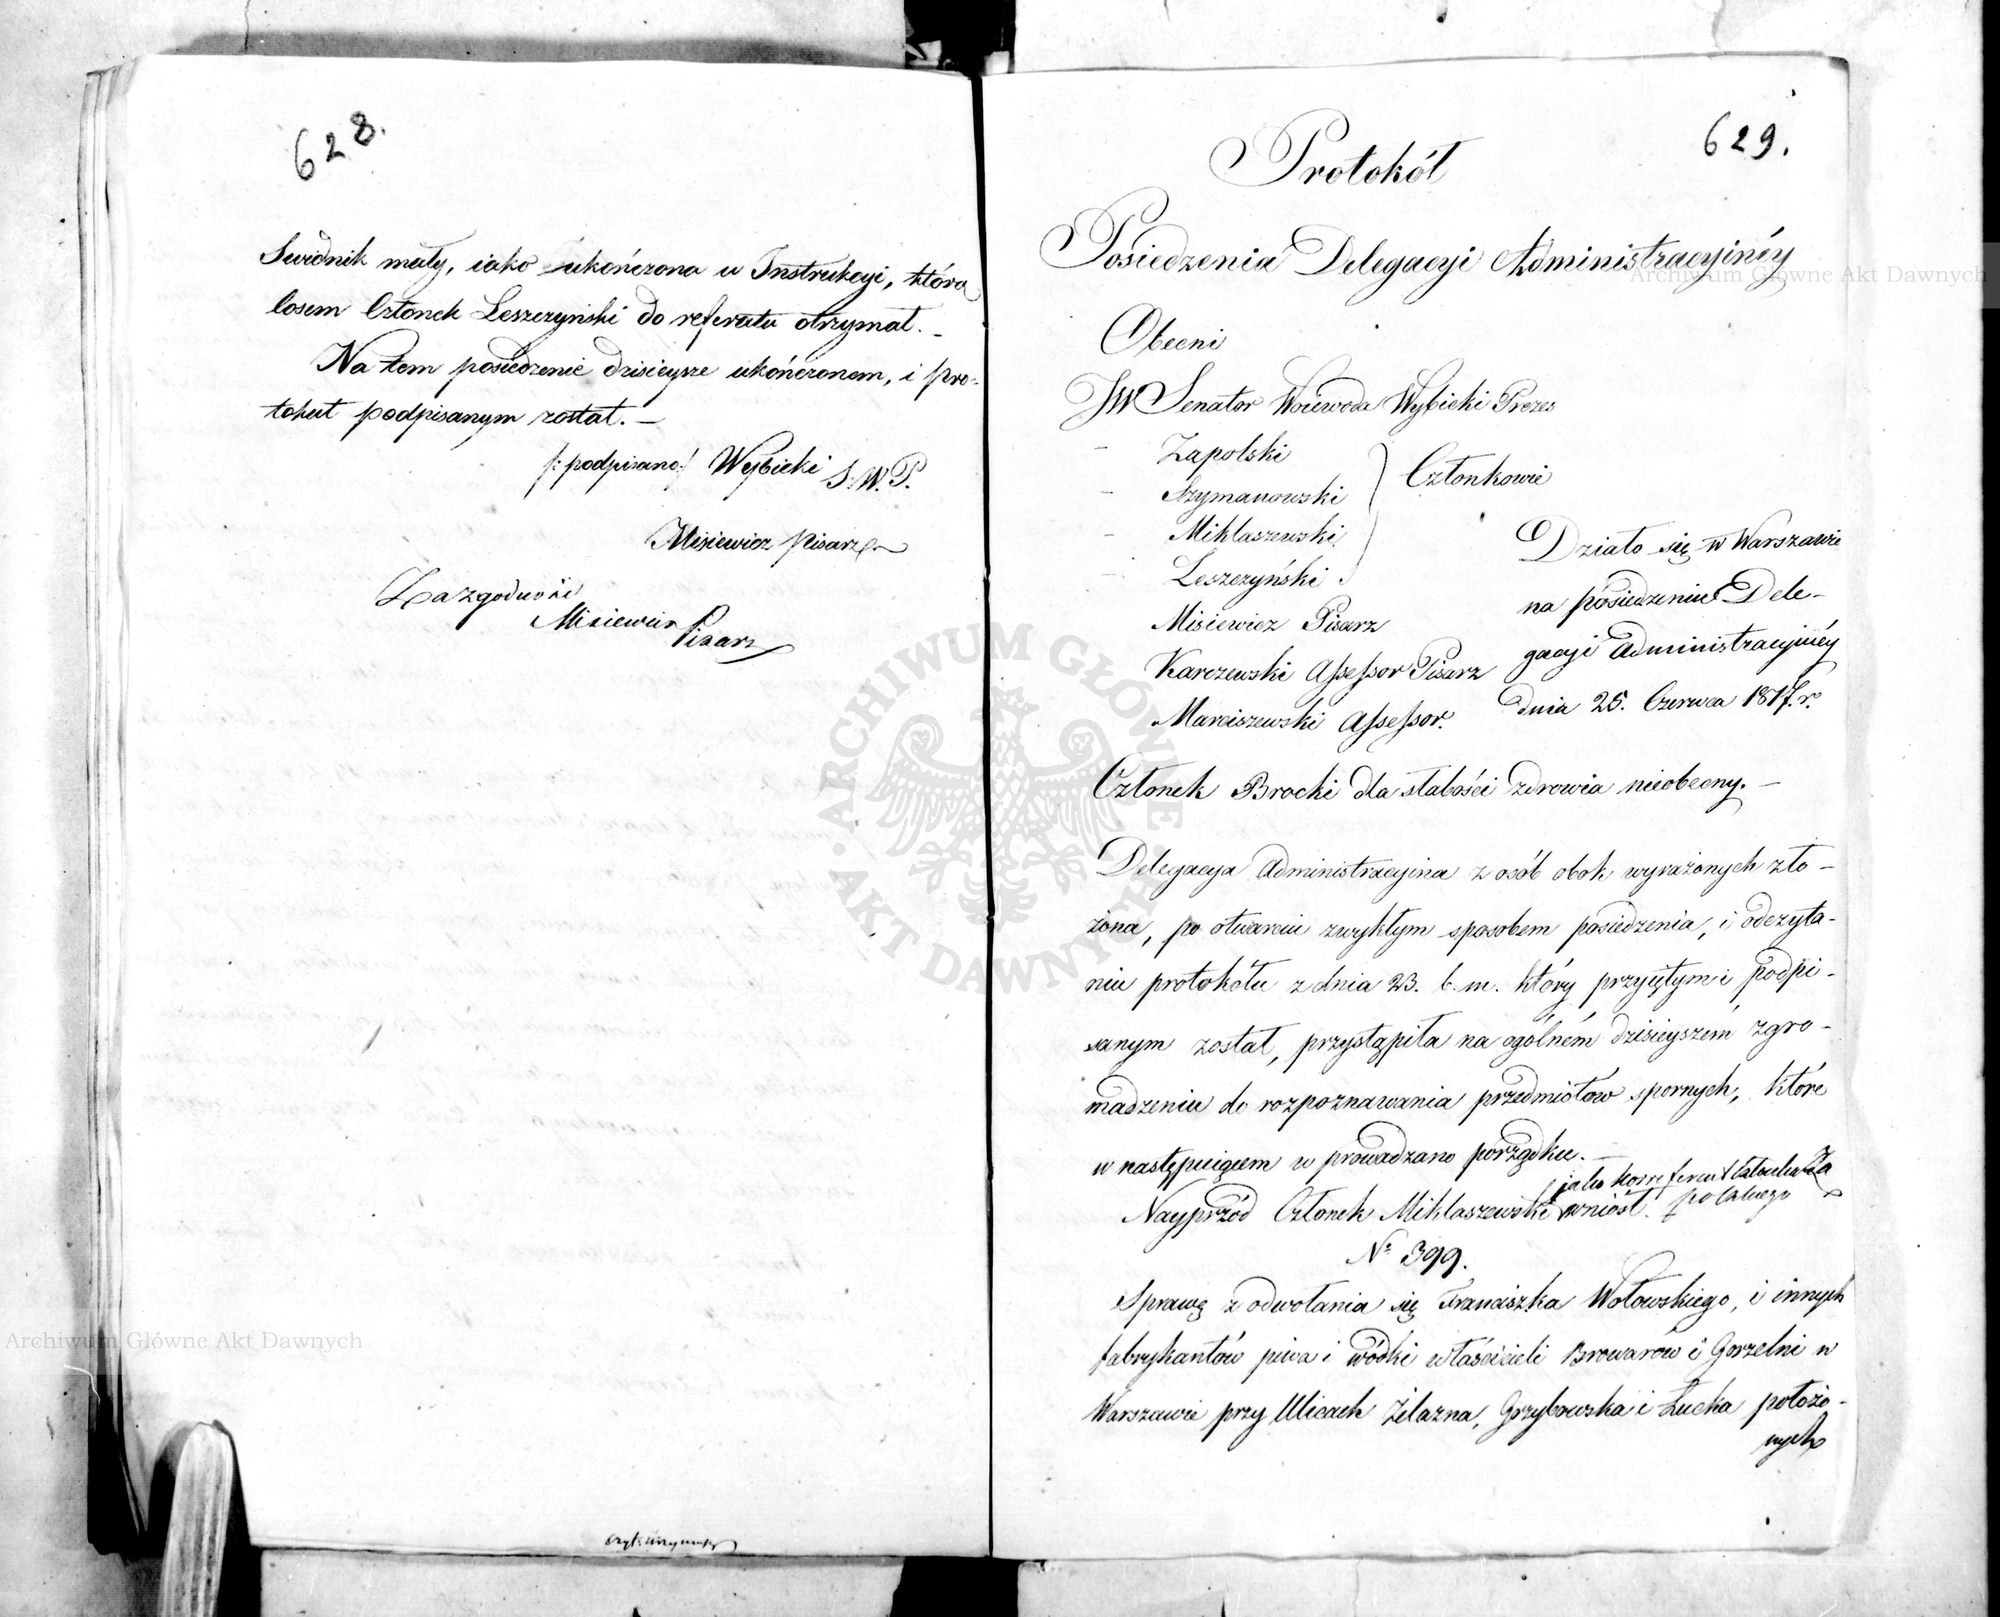 628.
Swidnik mały, iako ukończona w Instrukcyi, którą
losem Członek Leszczyński do referatu otrzymał. –
Na tem posiedzenie dzisieysze ukończonem, i pro-
tokuł podpisanym został. –
/: podpisano :/ Wybicki S. W. P.
Misiewicz Pisarz
Za zgodność
Misiewicz
Pisarz
629.
Protokół
Posiedzenia Delegacyi Administracyinéy
Obecni
JW Senator Woiewoda Wybicki Prezes
– Zapolski
– Szymanowski
Członkowie
– Miklaszewski
– Leszczyński
Misiewicz Pisarz
Karczewski Assessor Pisarz
Marciszewski Assessor.
Działo się w Warszawie
na posiedzeniu Dele-
gacyi Administracyinéy
dnia 25. Czerwca 1817. r.
Członek Brocki dla słabości zdrowia nieobecny. –
Delegacya Administracyina z osób obok wyrażonych zło-
żona, po otwarciu zwykłym sposobem posiedzenia, i odczyta-
niu protokółu z dnia 23. b. m. który przyiętym i podpi-
sanym został, przystąpiła na ogólném dzisieyszém zgro-
madzeniu do rozpoznawania przedmiotów spornych, które
w następuiącem wprowadzano porządku. –
jako korreferent
Nayprzód Członek Miklaszewski wniósł.
Nº 399.
Sprawę z odwołania się Franciszka Wołowskiego, i innych
fabrykantów piwa i wódki właścicieli Browarów i Gorzelni w
Warszawie przy Ulicach Żelazna, Grzybowska i Łucka położo-
nych
Archiwum Główne Akt Dawnych
Archiwum Główne Akt Dawnych
ARCHIWUM GŁÓWNE · AKT DAWNYCH ·